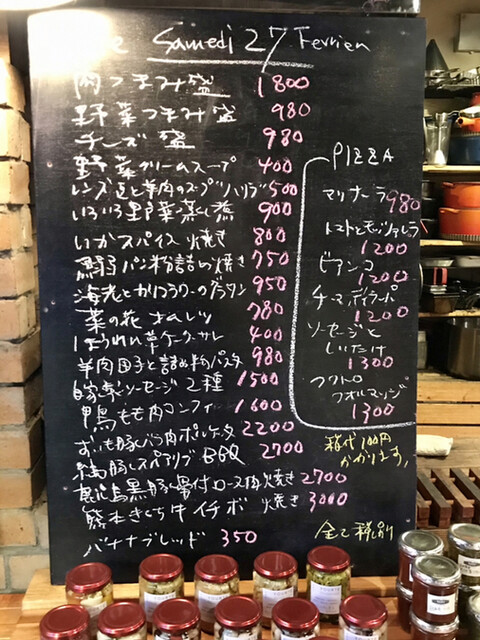 Le Samedi 27 Fevrier
肉つまみ盛 1800
野菜つまみ盛 980
チーズ盛 980
野菜クリームスープ 400
レンズ豆と羊肉のスープ"ハリラ" 500
いろいろ野菜蒸し煮 900
いかスパイス焼き 800
鰯パン粉詰め焼き 750
海老とカリフラワーのグラタン 950
菜の花オムレツ 780
ほうれん草ケークサレ 400
羊肉団子と詰め物パスタ 980
自家製ソーセージ2種 1500
鴨もも肉コンフィ 1600
おいも豚バラ肉ポルケッタ 2200
豚スペアリブBBQ 2700
鹿児島黒豚骨付ロース肉焼き 2700
熊本きくち牛イチボ焼き 3000
バナナブレッド 350
PIZZA
マリナーラ 980
トマトとモッツァレラ
1200
ビアンコ
1200
チーマディラーパ
1200
ソーセージと
しいたけ
1300
クワトロ
フォルマッジ
1300
箱代100円
かかります。
全て税別